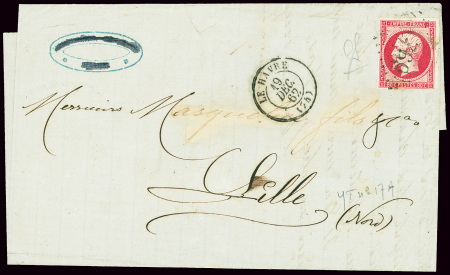 EMPIRE FRANC.
LE HAVRE
19
DEC
62
(74)
Messieurs Masquelier fils & Cie
Lille
YT n° 17A
(Nord)